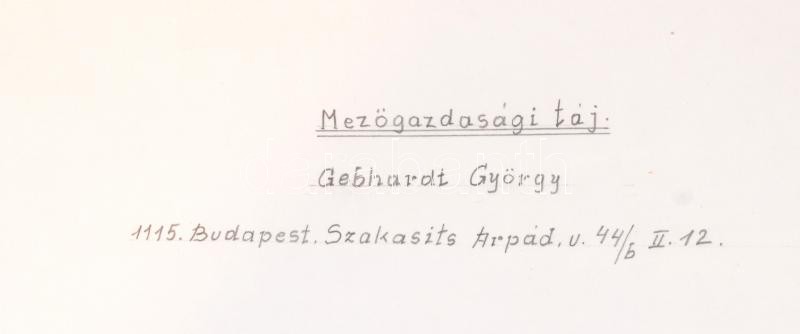 Mezögazdasági táj.
Gebhardt György
1115. Budapest. Szakasits Árpád. u. 44/b II. 12.